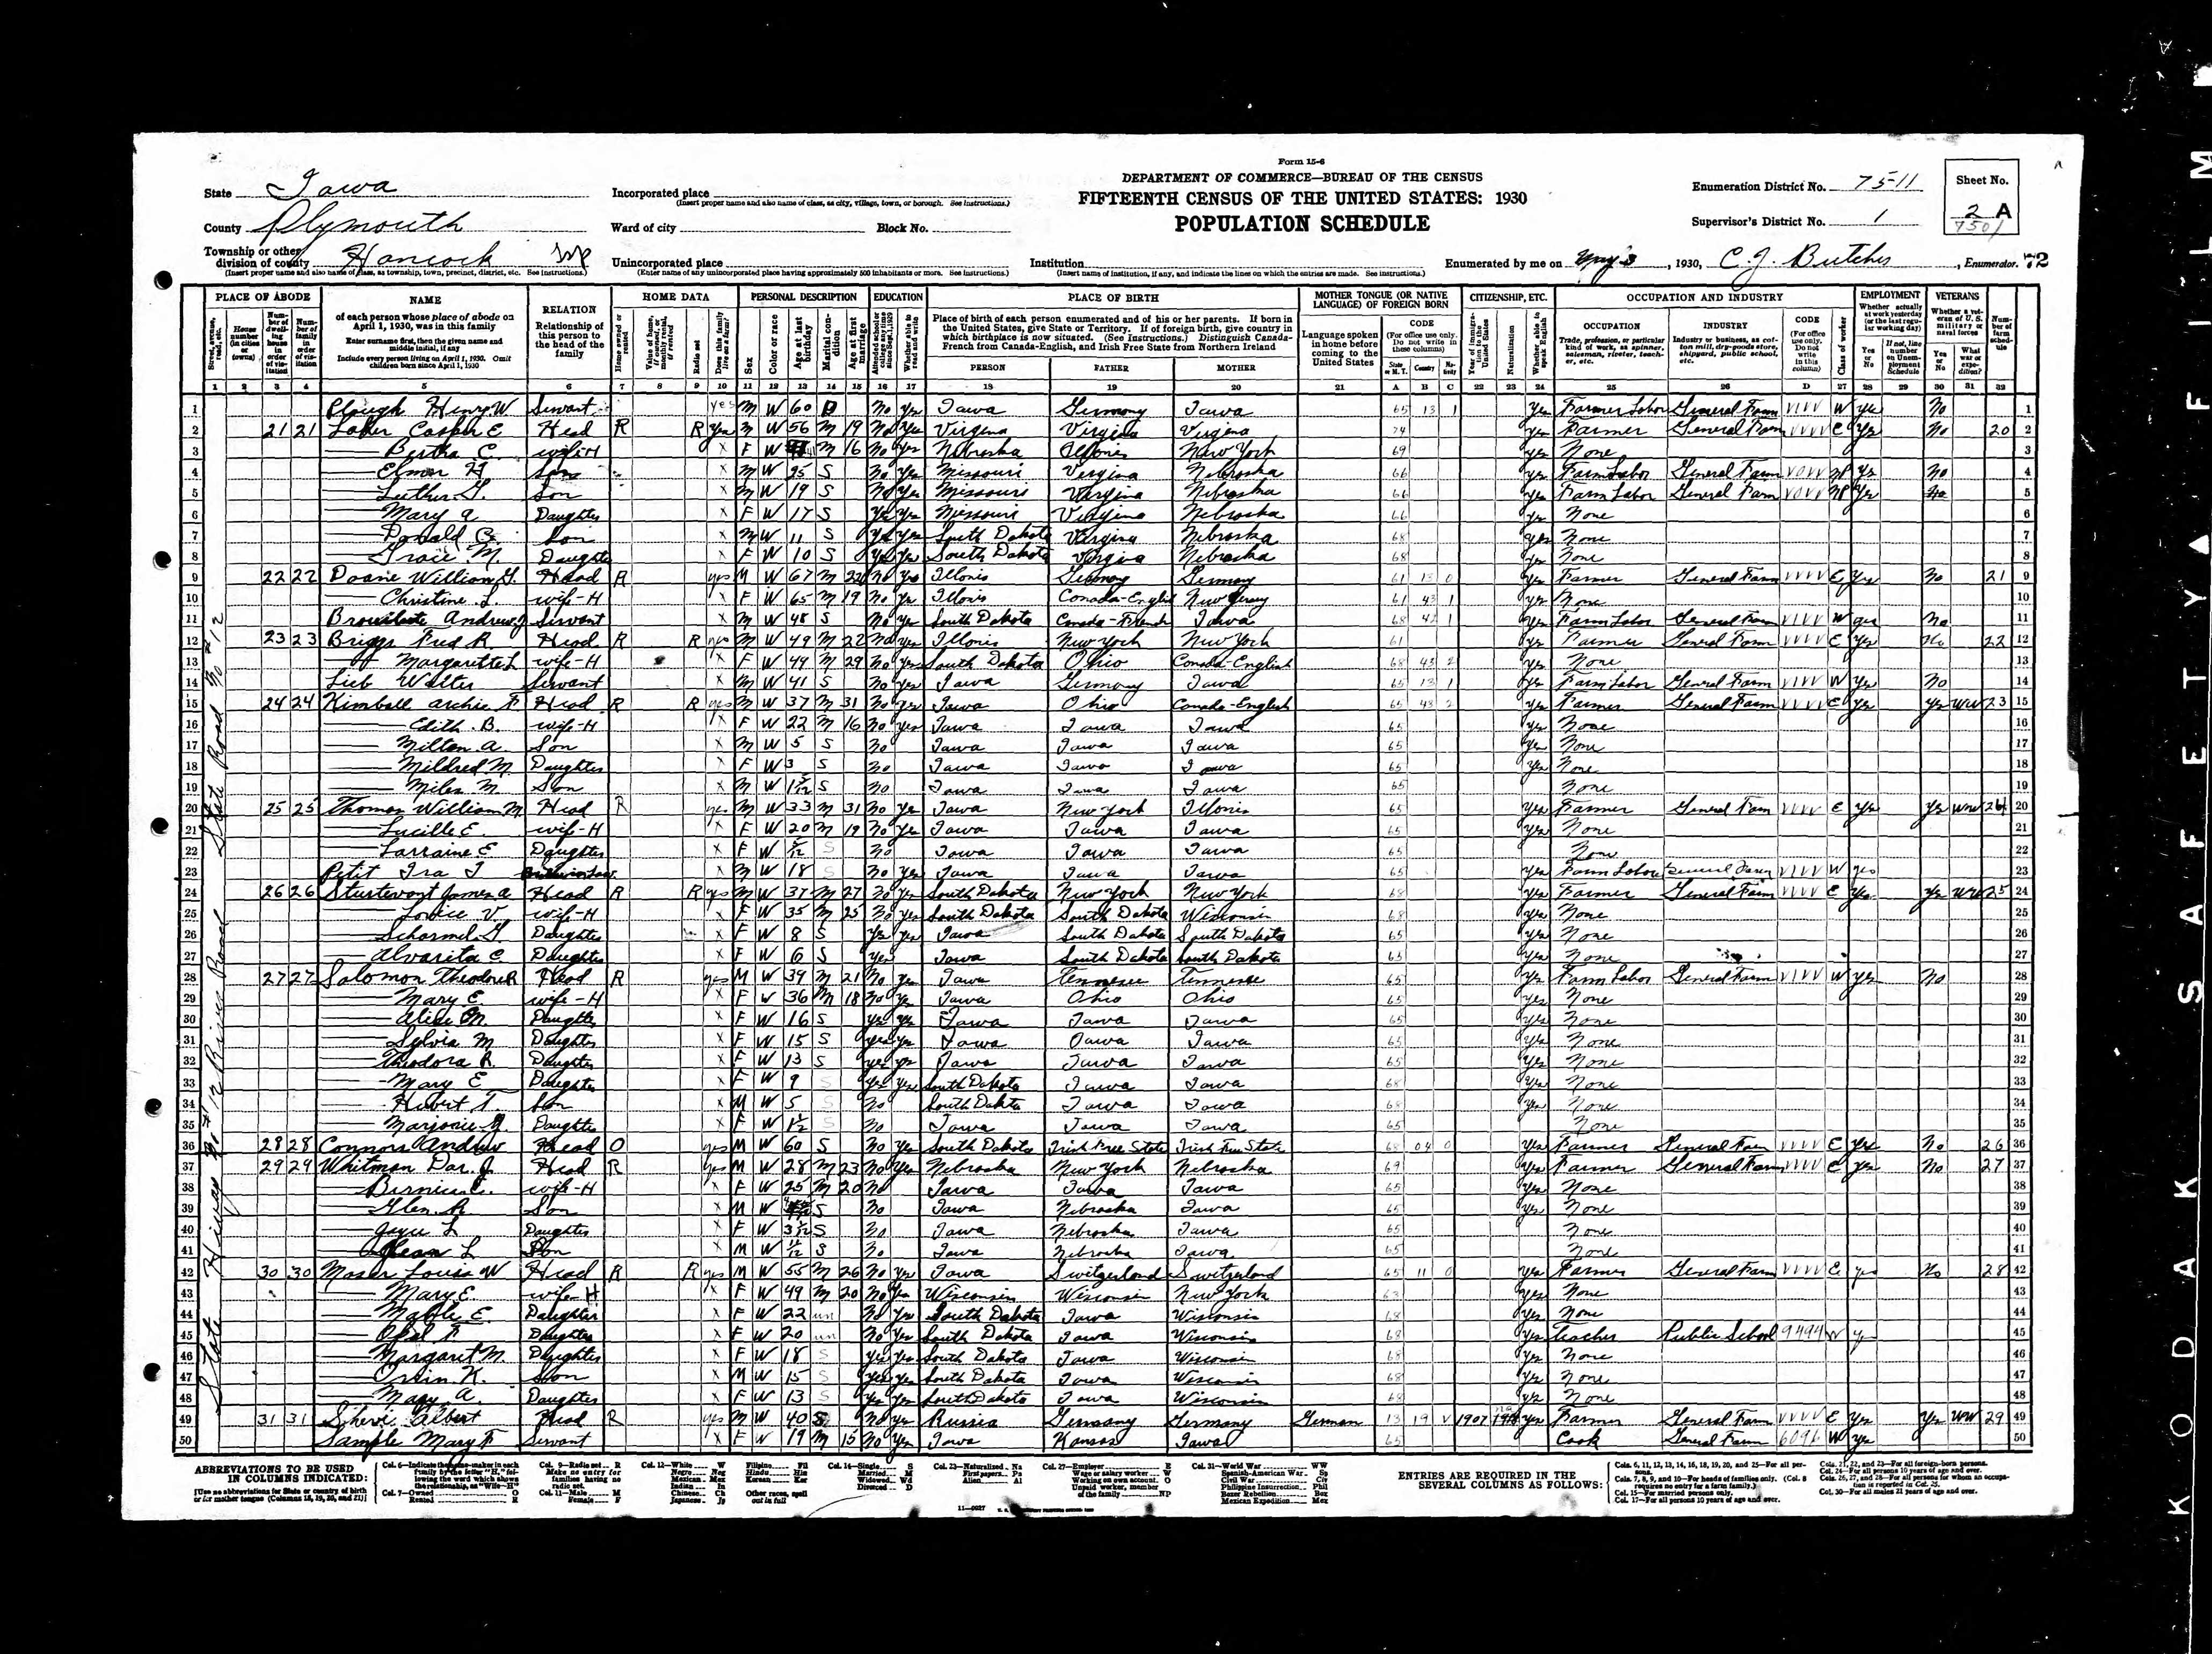 Form 15-6
DEPARTMENT OF COMMERCE—BUREAU OF THE CENSUS
FIFTEENTH CENSUS OF THE UNITED STATES: 1930
POPULATION SCHEDULE
State Iowa
County Plymouth
Township or other division of county Hancock
(Insert proper name and also name of class, as township, town, precinct, district, etc. See instructions.)
Incorporated place
(Insert proper name and also name of class, as city, village, town, or borough. See instructions.)
Ward of city Block No.
Unincorporated place
(Enter name of any unincorporated place having approximately 500 inhabitants or more. See instructions.)
Institution
(Insert name of institution, if any, and indicate the lines on which the entries are made. See instructions.)
Enumeration District No. 75-11
Supervisor's District No. 1
Sheet No.
2 A
7501
Enumerated by me on May 3, 1930, C. J. Butcher, Enumerator. 72
PLACE OF ABODE NAME RELATION HOME DATA PERSONAL DESCRIPTION EDUCATION PLACE OF BIRTH MOTHER TONGUE (OR NATIVE LANGUAGE) OF FOREIGN BORN CITIZENSHIP, ETC. OCCUPATION AND INDUSTRY EMPLOYMENT VETERANS
1 Henry W Servant yes M W 60 D No Yes Iowa Germany Iowa 65 13 1 Yes Farmer Labor General Farm VIVV W yes No 1
2 21 21 Casper E Head R R Yes M W 56 M 19 No Yes Virginia Virginia Virginia 74 yes Farmer General Farm VVVV E Yes No 20 2
3 Bertha C. wife-H X F W M 16 No Yes Nebraska Illinois New York 69 yes None 3
4 Elmer H Son X M W 25 S No Yes Missouri Virginia Nebraska 66 yes Farm Labor General Farm VOVV NP Yes No 4
5 Luther G. Son X M W 19 S No Yes Missouri Virginia Nebraska 66 Yes Farm Labor General Farm VOVV NP Yes No 5
6 Mary A Daughter X F W 17 S Yes Yes Missouri Virginia Nebraska 66 yes None 6
7 Donald C. Son X M W 11 S Yes Yes South Dakota Virginia Nebraska 68 Yes None 7
8 Gracie M. Daughter X F W 10 S Yes Yes South Dakota Virgina Nebraska 68 yes None 8
9 22 22 Doane William G. Head R yes M W 67 M 22 No Yes Illonis Germany Germany 61 13 0 Yes Farmer General Farm VVVV E Yes No 21 9
10 Christine L wife-H X F W 65 M 19 No Yes Illonis Canada-English New Jersey 61 43 1 yes None 10
11 Andrew J Servant X M W 48 S No Yes South Dakota Canada-French Iowa 68 42 1 Yes Farm Labor General Farm VIVV W yes No 11
12 23 23 Briggs Fred R Head R R yes M W 49 M 22 No Yes Illonis New York New York 61 Yes Farmer General Farm VVVV E yes No 22 12
13 Margarette L wife-H X F W 49 M 29 No Yes South Dakota Ohio Canada-English 68 43 2 Yes None 13
14 Lieb Walter Servant X M W 41 S No Yes Iowa Germany Iowa 65 13 1 Yes Farm Labor General Farm VIVV W Yes No 14
15 24 24 Kimball Archie F Head R R yes M W 37 M 31 No Yes Iowa Ohio Canada-English 65 43 2 Yes Farmer General Farm VVVV E Yes Yes WW 23 15
16 Edith B. wife-H X F W 22 M 16 No Yes Iowa Iowa Iowa 65 Yes None 16
17 Milton A. Son X M W 5 S No Iowa Iowa Iowa 65 Yes None 17
18 Mildred M. Daughter X F W 3 S No Iowa Iowa Iowa 65 Yes None 18
19 Miles M. Son X M W S No Iowa Iowa Iowa 65 None 19
20 25 25 Thomas William M. Head R yes M W 33 M 31 No Yes Iowa New York Illonis 65 Yes Farmer General Farm VVVV E Yes Yes WW 24 20
21 Lucille E. wife-H X F W 20 M 19 No Yes Iowa Iowa Iowa 65 Yes None 21
22 Larraine E Daughter X F W S No Iowa Iowa Iowa 65 None 22
23 Petit Ira T X M W 18 S No Yes Iowa Iowa Iowa 65 Yes Farm Labor General Farm VIVV W yes 23
24 26 26 Sturtevant James A Head R R yes M W 37 M 27 No Yes South Dakota New York New York 68 Yes Farmer General Farm VVVV E Yes Yes WW 25 24
25 Louice V. wife-H X F W 35 M 25 No Yes South Dakota South Dakota Wisconsin 68 Yes None 25
26 Scharmel G. Daughter X F W 8 S Yes yes Iowa South Dakota South Dakota 65 Yes None 26
27 Alvarita C. Daughter X F W 6 S Yes Iowa South Dakota South Dakota 65 Yes None 27
28 27 27 Solomon Theodore R Head R yes M W 39 M 21 No Yes Iowa Tennesee Tennesee 65 Yes Farm Labor General Farm VIVV W yes No 28
29 Mary E. wife-H X F W 36 M 18 No Yes Iowa Ohio Ohio 65 yes None 29
30 Alice M. Daughter X F W 16 S Yes Yes Iowa Iowa Iowa 65 yes None 30
31 Sylvia M Daughter X F W 15 S yes yes Iowa Iowa Iowa 65 Yes None 31
32 Theodora R. Daughter X F W 13 S yes yes Iowa Iowa Iowa 65 Yes None 32
33 Mary E Daughter X F W 9 S Yes Yes South Dakota Iowa Iowa 68 Yes None 33
34 Hubert T Son X M W 5 S No South Dakota Iowa Iowa 68 Yes None 34
35 Marjorie Daughter X F W S No Iowa Iowa Iowa 65 None 35
36 28 28 Connors Andrew Head O yes M W 60 S No Yes South Dakota Irish Free State Irish Free State 68 04 0 Yes Farmer General Farm VVVV E Yes No 26 36
37 29 29 Whitman Dar. J. Head R Yes M W 28 M 23 No Yes Nebraska New York Nebraska 69 Yes Farmer General Farm VVVV E yes No 27 37
38 wife-H X F W 25 M 20 No Iowa Iowa Iowa 65 Yes None 38
39 Glen R. Son X M W S No Iowa Nebraska Iowa 65 Yes None 39
40 Joyce L Daughter X F W S No Iowa Nebraska Iowa 65 None 40
41 L Son X M W S No Iowa Nebraska Iowa 65 None 41
42 30 30 Moser Louis W Head R R yes M W 55 M 26 No Yes Iowa Switzerland Switzerland 65 11 0 Yes Farmer General Farm VVVV E yes No 28 42
43 Mary E. wife-H X F W 49 M 20 No Yes Wisconsin Wisconsin New York 63 Yes None 43
44 Mable E. Daughter X F W 22 un No Yes South Dakota Iowa Wisconsin 68 Yes None 44
45 Opal F Daughter X F W 20 un No Yes South Dakota Iowa Wisconsin 68 Yes Teacher Public School 9494 W 45
46 Margaret M. Daughter X F W 18 S Yes Yes South Dakota Iowa Wisconsin 68 Yes None 46
47 Orvin K. Son X M W 15 S Yes Yes South Dakota Iowa Wisconsin 68 Yes None 47
48 Mary A. Daughter X F W 13 S Yes Yes South Dakota Iowa Wisconsin 68 Yes None 48
49 31 31 Albert Head R yes M W 40 S No Yes Russia Germany Germany German 13 19 V 1907 Yes Farmer General Farm VVVV E Yes Yes WW 29 49
50 Sample Mary F Servant X F W 19 M 15 No Yes Iowa Kansas Iowa 65 Cook General Farm 6096 W yes 50
State Hiway No #12 River Road State Road No #12
ABBREVIATIONS TO BE USED IN COLUMNS INDICATED:
[Use no abbreviations for State or country of birth or for mother tongue (Columns 18, 19, 20, and 21)]
ENTRIES ARE REQUIRED IN THE SEVERAL COLUMNS AS FOLLOWS:
KODAK SAFETY ▲ FILM